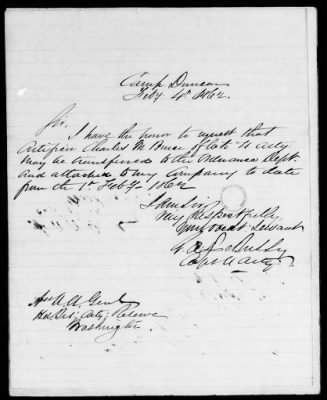 Camp Duncan
Feby 4th 1862.
Sir,
I have the honor to request that
Artificer Charles M. Bruce of Co 4 Arty
may be transferred to the Ordnance Dept.
And attached to my Company to date
from the 1st Feby 1862
I am Sir
Very Respectfully
Your obedt Servant
Capt Arty
A. A. Genl
Hd Qrs Arty Reserve
Washington